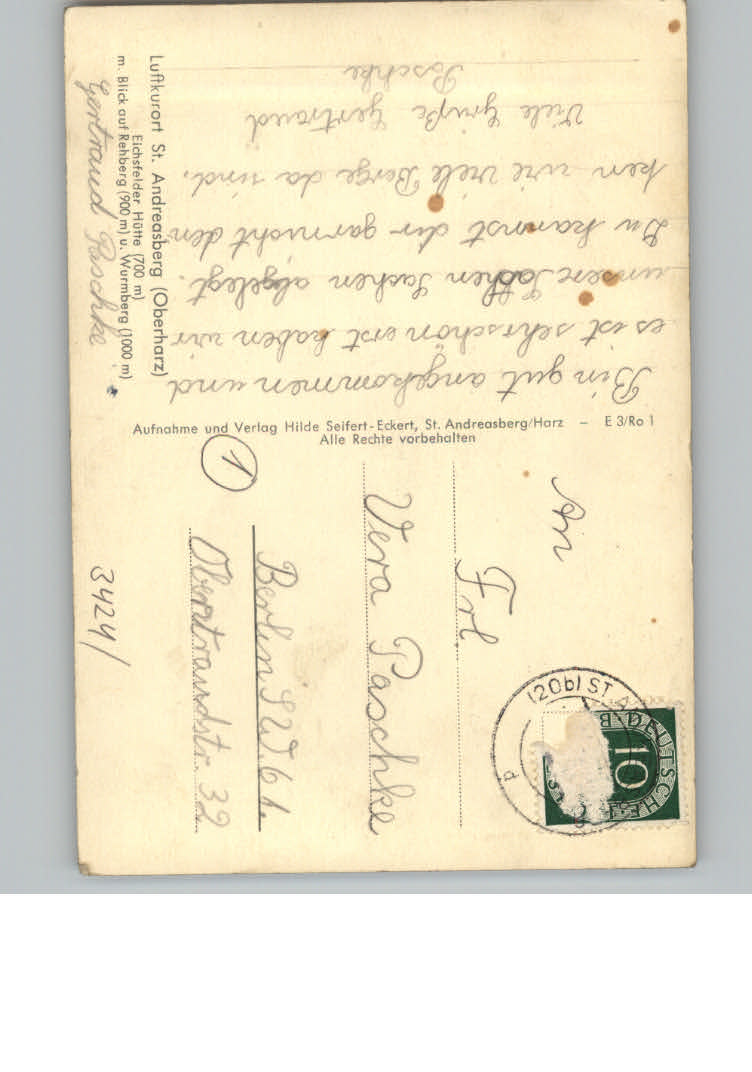 Luftkurort St. Andreasberg (Oberharz)
Eichsfelder Hütte (700 m)
m. Blick auf Rehberg (900 m) u. Wurmberg (1000 m)
Gertraud Paschke
Bin gut angekommen und
es ist sehr schön erst haben wir
unsere Sachen abgelegt.
Du kannst dir garnicht den
ken wie viele Berge da sind.
Viele Grüße Gertraud
Paschke
Aufnahme und Verlag Hilde Seifert-Eckert, St. Andreasberg/Harz – E 3/Ro 1
Alle Rechte vorbehalten
An
Frl
Vera Paschke
Berlin SW. 61.
Obentrautstr. 32
1
3424/
(20b) ST. A
DEUTSCHE B
10